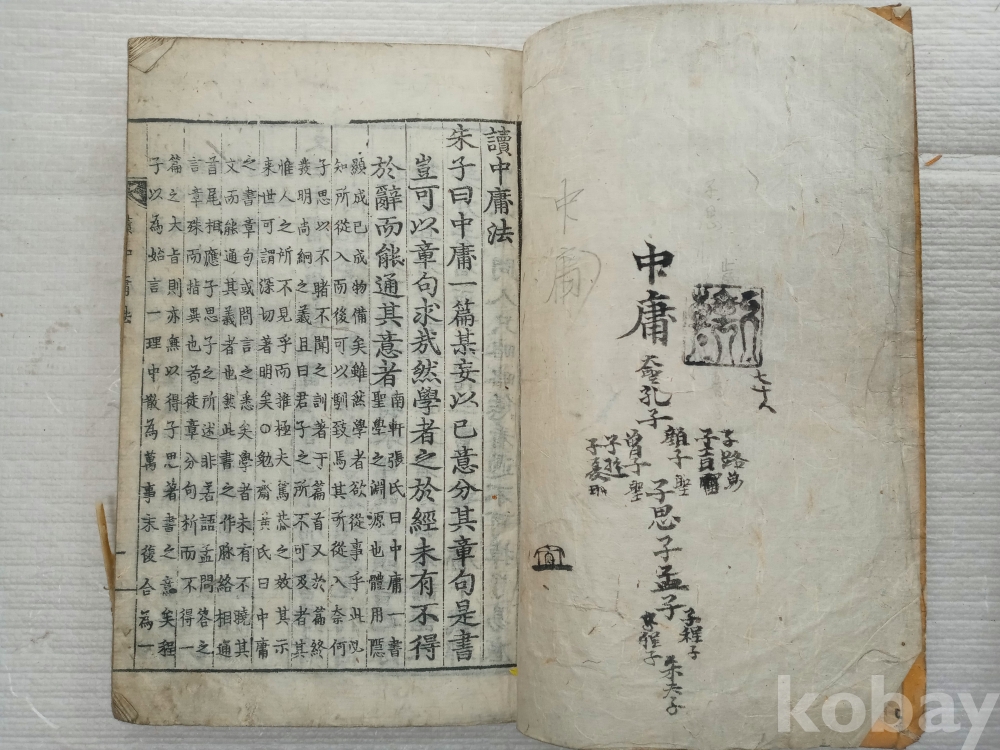 中庸
中庸
七十人
大聖孔子
子路
子貢
顔子聖
曾子聖
子游
子夏
子思子孟子
子程子
朱夫子
讀中庸法
朱子曰中庸一篇某妄以己意分其章句是書
豈可以章句求哉然學者之於經未有不得
於辭而能通其意者南軒張氏曰中庸一書
聖學之淵源也體用隱
顯成己成物備矣雖然學者欲從事乎此必
知所從入而後可以馴致焉其所從入奈何
子思以不睹不聞之訓著于篇首又於篇終
發明尚絅之義且曰君子之所不可及者其
惟人之所不見乎而推極夫篤恭之效其示
來世可謂深切著明矣○勉齋黃氏曰中庸
之書章句或問言之悉矣學者未有不曉其
文而能通其義者也然此書之作脉絡相通
首尾相應子思子之所述非若語孟問答之
言章殊而指異也苟徒章分句析而不得一
篇之大旨則亦無以得子思著書之意矣程
子以為始言一理中散為萬事末後合為一
讀中庸法 一
kobay